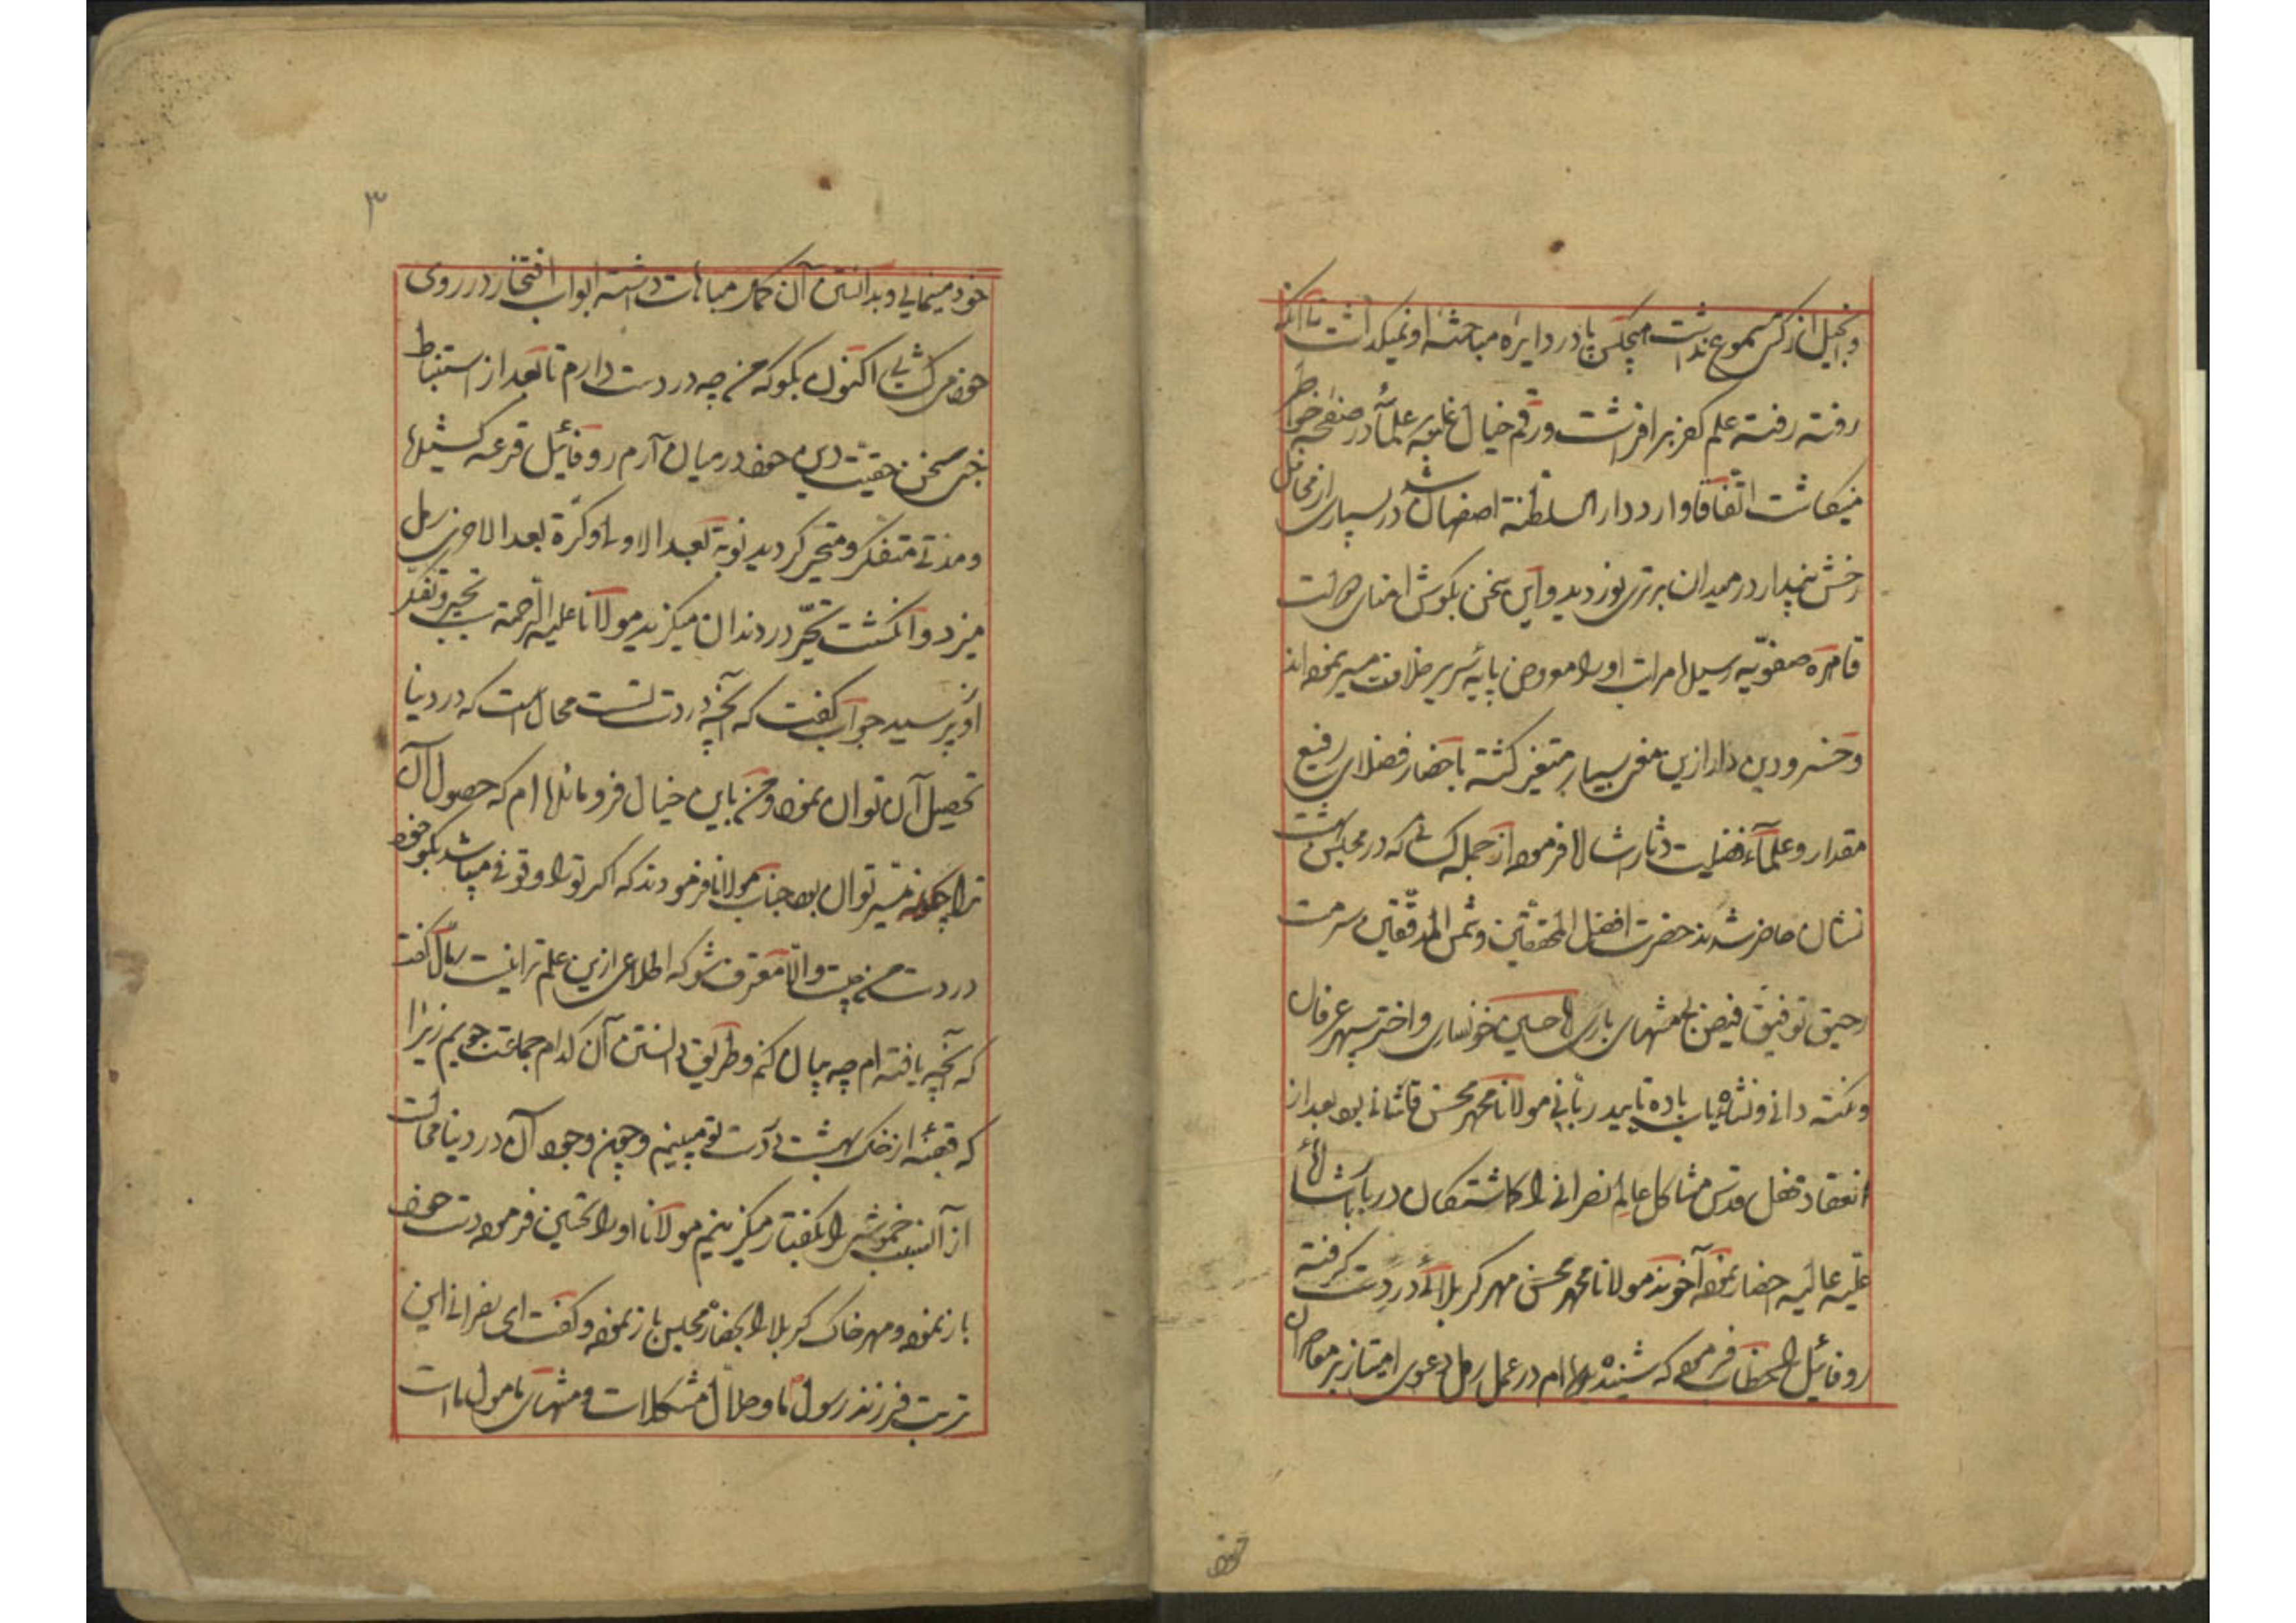 و انجیل از کس مسموع نداشت هیچکس پا در دایره مباحثه او نمیگذاشت تا آنکه
رفته رفته علم کفر بر افراشت و رقم خیال غلبه علمآ در صفحه خواطر
مینکاشت اتفاقا وارد دار السلطنة اصفهان شد در بسیاری از محافل
رخش پندار در میدان برتری نوردید و این سخن بکوش امنای دولت
قاهره صفویّه رسیده مراتب او را معروض پایه سریر خلافت مسیر نموده اند
و خسرو دین دار ازین معنی بسیار متغیر کشته باحضار فضلای رفیع
مقدار و علمآء فضیلت دثار اشاره فرموده از جمله کسانی که در مجلس بهشت
نشان حاضر شدند حضرت افضل المحققین و شمس المدققین سرمست
رحیق توفیق فیض بخشهای باری اقا حسین خونساری و اختر سپهر عرفان
و نکته دانی و نشاه یاب باده تایید ربانی مولانا محمد محسن قاشانی بوده بعد از
انعقاد محفل قدس مشاکل عالم نصرانی را کماشتکان دربار شاهی
علیه عالیه احضار نموده آخوند مولانا محمد محسن مهر کربلائی در دست کرفته
روفائیل را مخاطب فرموده که شنیده ام در عمل رمل دعوی امتیاز بر معاصران
خود
۳
خود مینمایی و بدانستن آن کمال مباهات داشته ابواب افتخار در روی
خود می کشائی اکنون بکو که من چه در دست دارم تا بعد از استنباط
خبی سخن حقیّت دین خود در میان آرم روفائیل قرعه کشیده
و مدتی متفکر و متحیر کردید نوبة بعد الاولی و کرّة بعد الاخری رمل
میزد و انکشت تحیّر در دندان میکزید مولانا علیه الرحمة سبب تحیر و تفکر
او پرسید جواب کفت که آنچه در دست تست محال است که در دنیا
تحصیل آن توان نمود و من باین خیال فرو مانده ام که حصول آن
ترا چکونه میسر توان بود جناب مولانا فرمودند که اکر تو را وقوفی میباشد بکو خود
در دست من چیست والا معترف شو که اطلاعی ازین علم ترا نیست رمّال کفت
که آنچه یافته ام چه بیان کنم و طریق دانستن آن کدام جماعت جویم زیرا
که قبضه از خاک بهشت در دست تو میبینم و چون وجود آن در دنیا محالست
از آن سبب خموشی را بکفتار میکزینم مولانا او را تحسین فرموده دست خود
باز نموده و مهر خاک کربلا را بحضار مجلس باز نموده و کفت ای نصرانی این
تربت فرزند رسول ما و حلّال مشکلات و منتهای مامول ما است